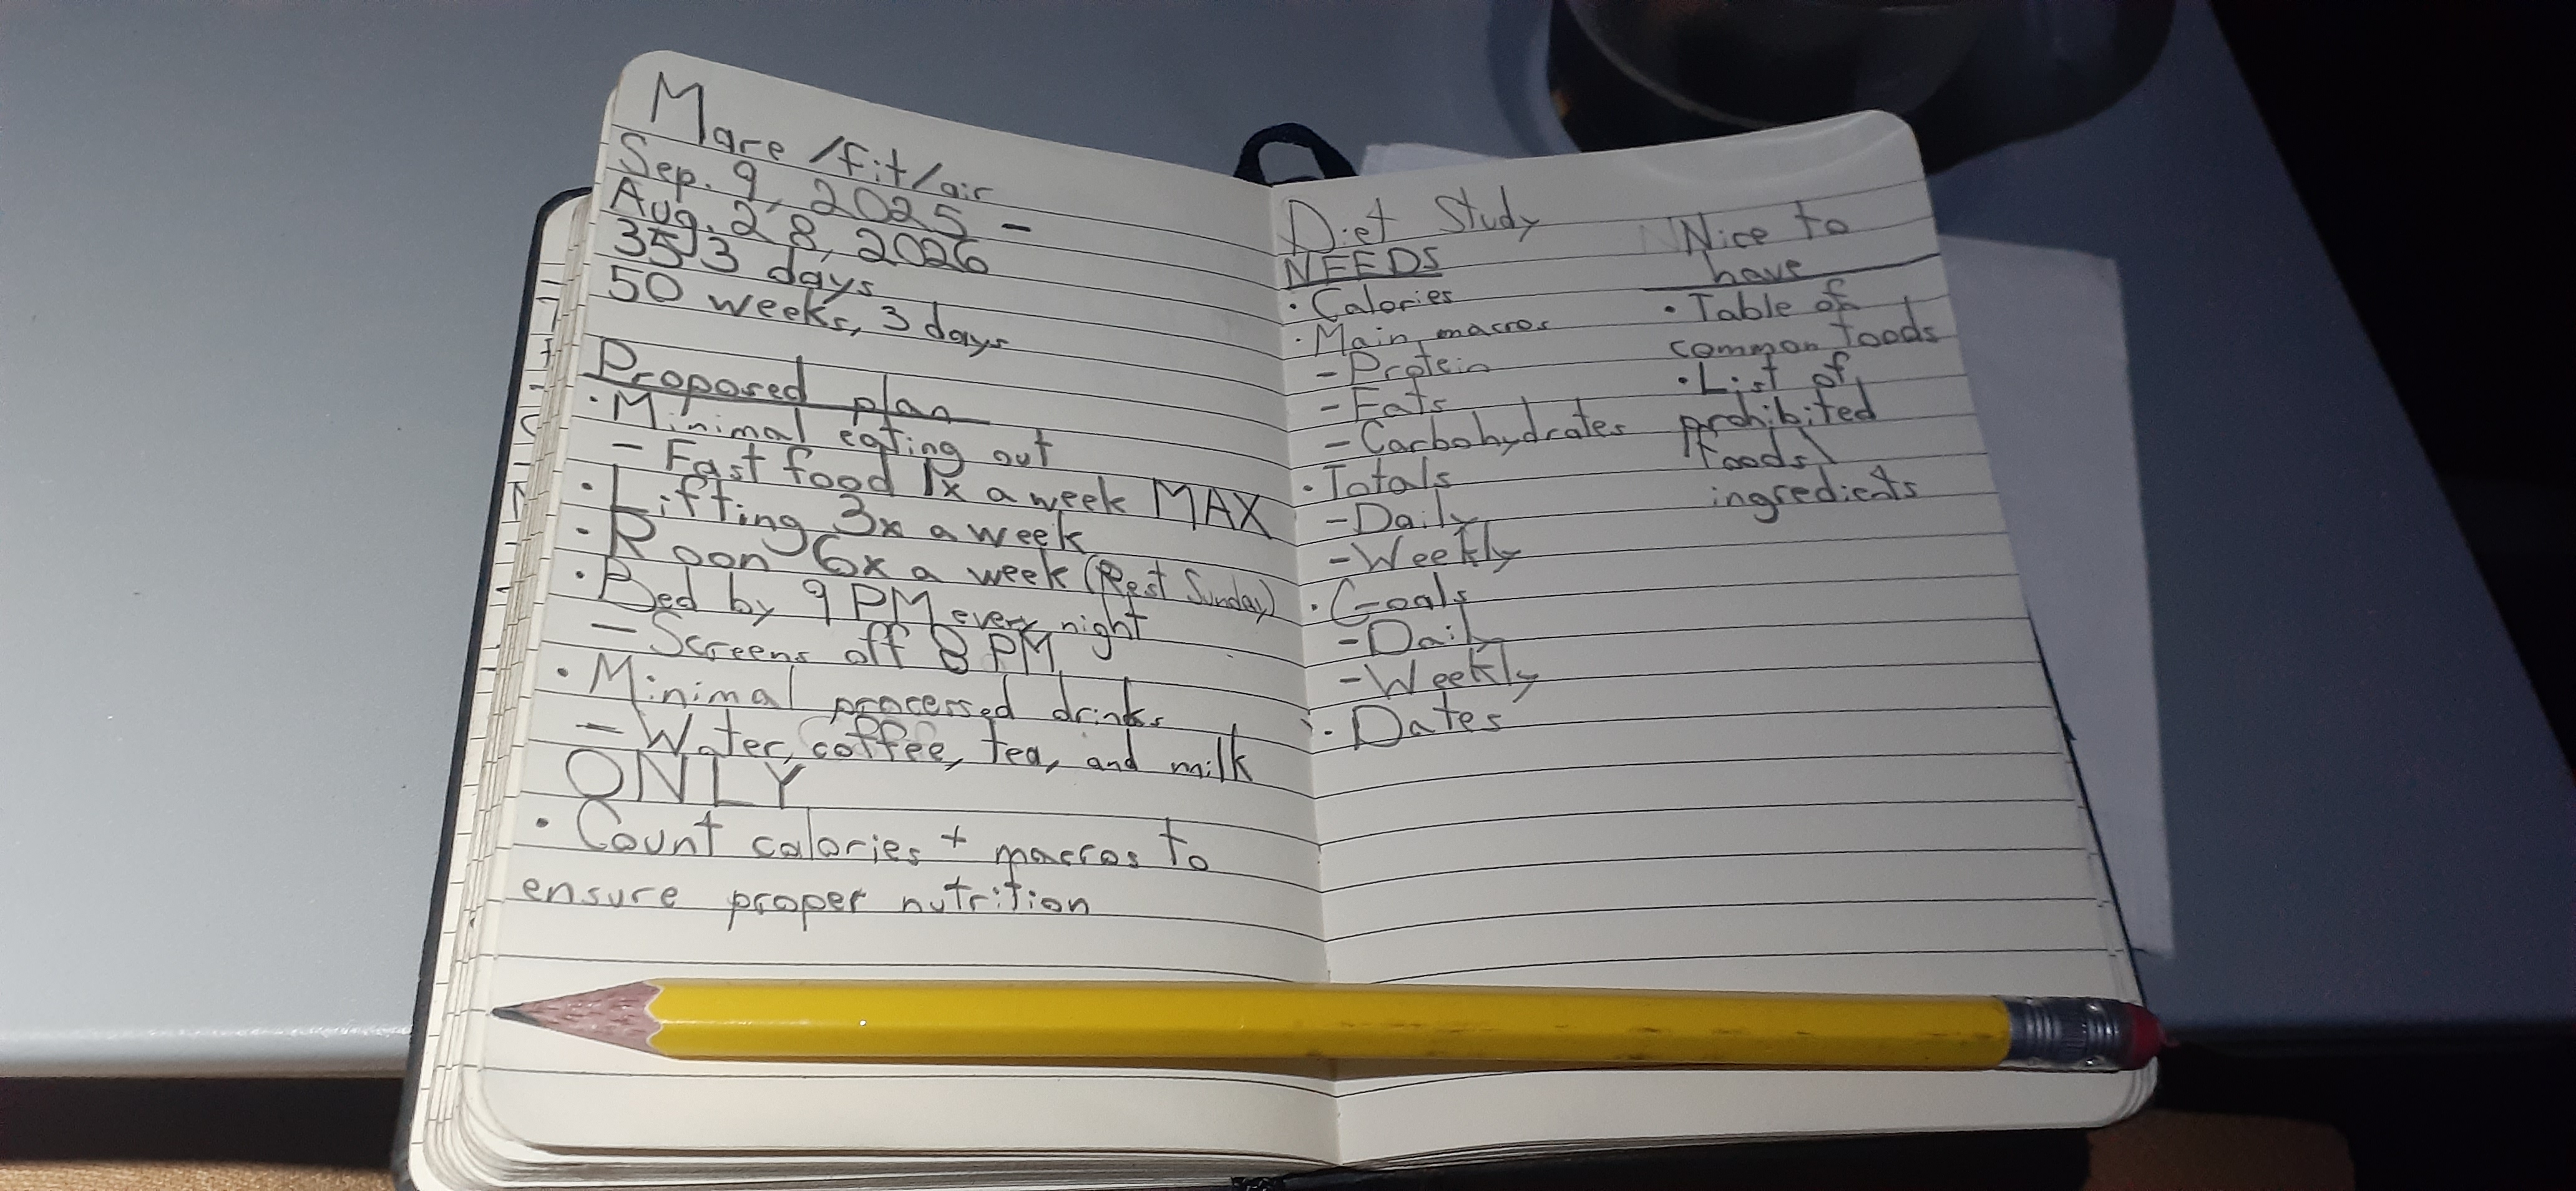 Mare/fit/air
Sep. 9, 2025 -
Aug. 28, 2026
353 days
50 weeks, 3 days
Proposed plan
· Minimal eating out
- Fast food 1x a week MAX
· Lifting 3x a week
· Roon 6x a week (Rest Sunday)
· Bed by 9 PM every night
- Screens off 8 PM
· Minimal processed drinks
- Water, coffee, tea, and milk
ONLY
· Count calories + macros to
ensure proper nutrition
Diet Study
NEEDS
· Calories
· Main macros
- Protein
- Fats
- Carbohydrates
· Totals
- Daily
- Weekly
· Goals
- Daily
- Weekly
· Dates
Nice to
have
· Table of
common foods
· List of
prohibited
foods\
ingredients